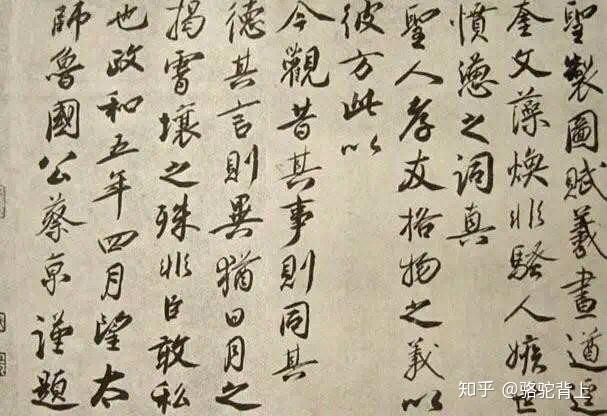 聖製圖賦羲畫遒經
奎文藻煥非騷人嫉世
憤懣之詞真
聖人孝友格物之義以
彼方此以
今觀昔其事則同其
德其言則異猶日月之
揭霄壤之殊非臣敢私
也政和五年四月望太
師魯國公蔡京謹題
知乎 @骆驼背上